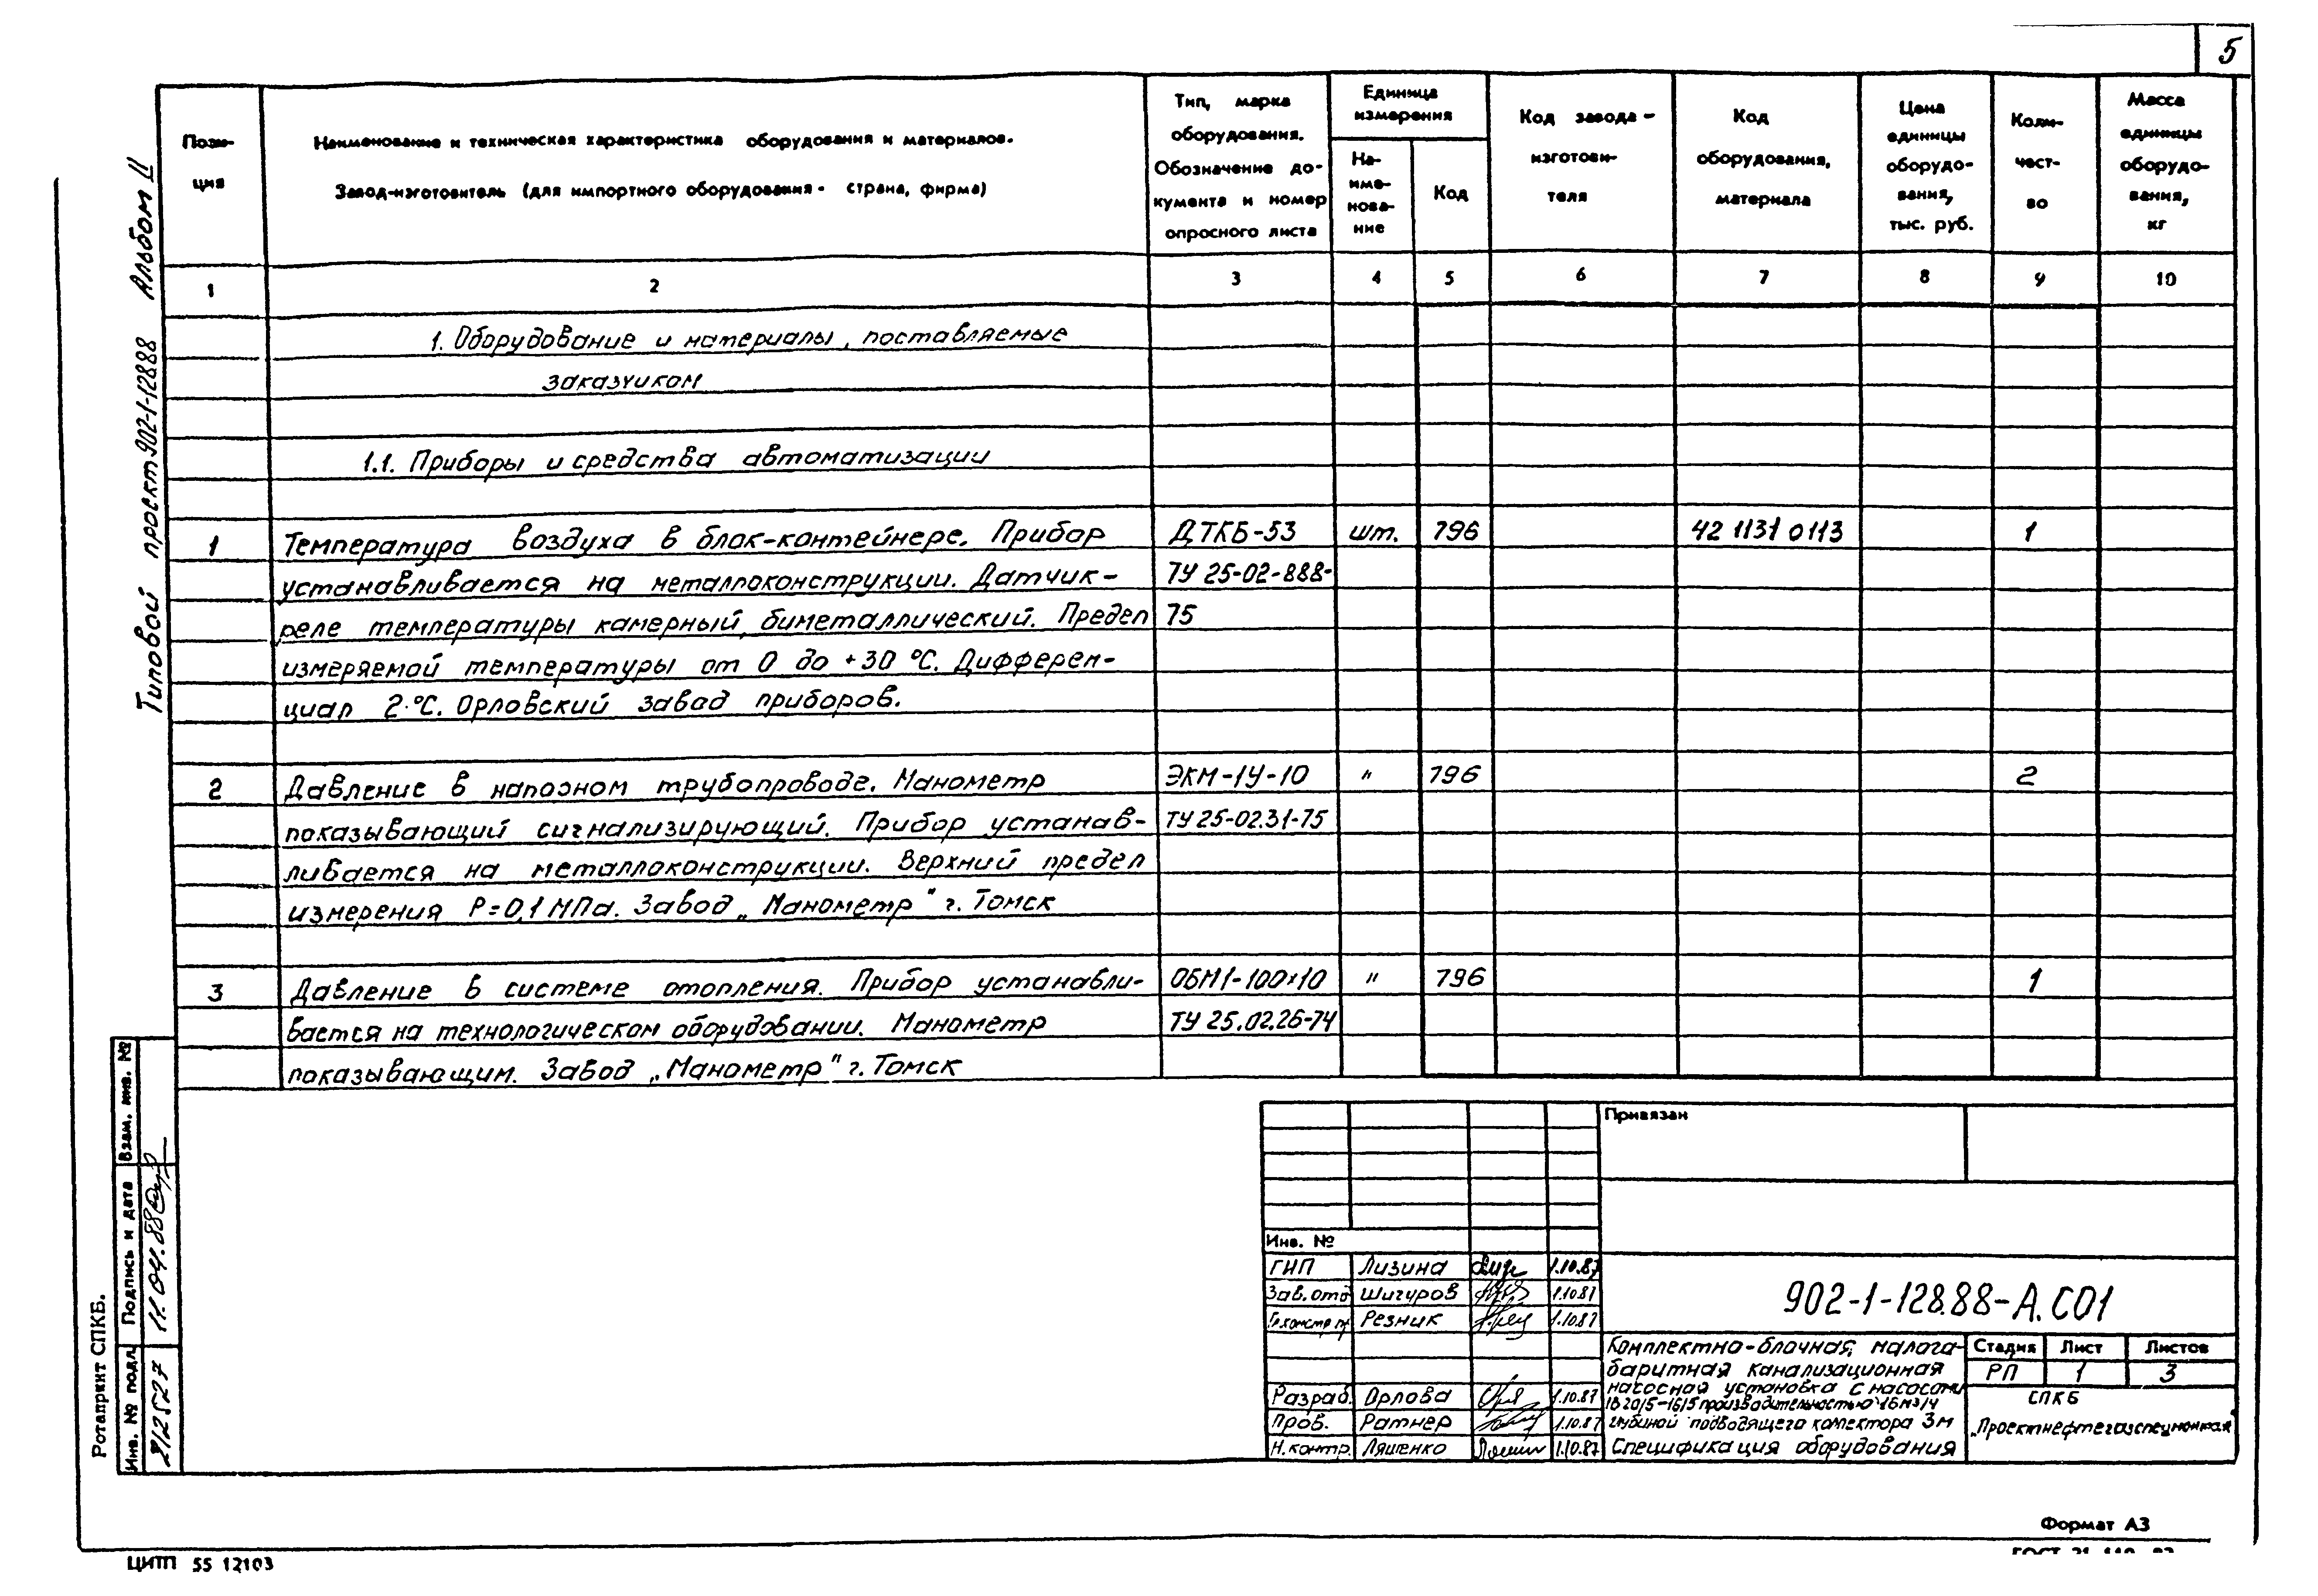 5
Типовой проект 902-1-128.88 Альбом II
Пози-
ция
Наименование и техническая характеристика оборудования и материалов.
Завод-изготовитель (для импортного оборудования - страна, фирма)
Тип, марка
оборудования.
Обозначение до-
кумента и номер
опросного листа
Единица
измерения
На-
име-
нова-
ние
Код
Код завода-
изготови-
теля
Код
оборудования,
материала
Цена
единицы
оборудо-
вания,
тыс. руб.
Коли-
чест-
во
Масса
единицы
оборудо-
вания,
кг
1 2 3 4 5 6 7 8 9 10
1. Оборудование и материалы, поставляемые
заказчиком
1.1. Приборы и средства автоматизации
1 Температура воздуха в блок-контейнере. Прибор ДТКБ-53 шт. 796 42 1131 0113 1
устанавливается на металлоконструкции. Датчик- ТУ 25-02-888-
реле температуры камерный, биметаллический. Предел 75
измеряемой температуры от 0 до +30 °С. Дифферен-
циал 2 °С. Орловский завод приборов.
2 Давление в напозном трубопроводе. Манометр ЭКМ-1У-10 " 796 2
показывающий сигнализирующий. Прибор устанав- ТУ 25-02.31-75
ливается на металлоконструкции. Верхний предел
измерения Р=0,1 МПа. Завод „Манометр" г. Томск
3 Давление в системе отопления. Прибор устанавли- ОБМ1-100х10 " 796 1
вается на технологическом оборудовании. Манометр ТУ 25.02.26-74
показывающим. Завод „Манометр" г. Томск
Привязан
Инв. №
ГИП Лизина 1.10.87
Зав.отд Шигуров 1.10.87
Гл.констр.пр Резник 1.10.87
Разраб. Орлова 1.10.87
Пров. Ратнер 1.10.87
Н.контр. Ляшенко 1.10.87
902-1-128.88-А.СО1
Комплектно-блочная, малога-
баритная канализационная
насосная установка с насосами
1В 20/5-16/5 производительностью 16 м3/ч
глубиной подводящего колектора 3 м
Спецификация оборудования
Стадия Лист Листов
РП 1 3
СПКБ
„Проектнефтегазспецмонтаж"
Ротапринт СПКБ.
Инв. № подл. Подпись и дата Взам. инв. №
11.04.88
Формат А3
ЦИТП 55 12103